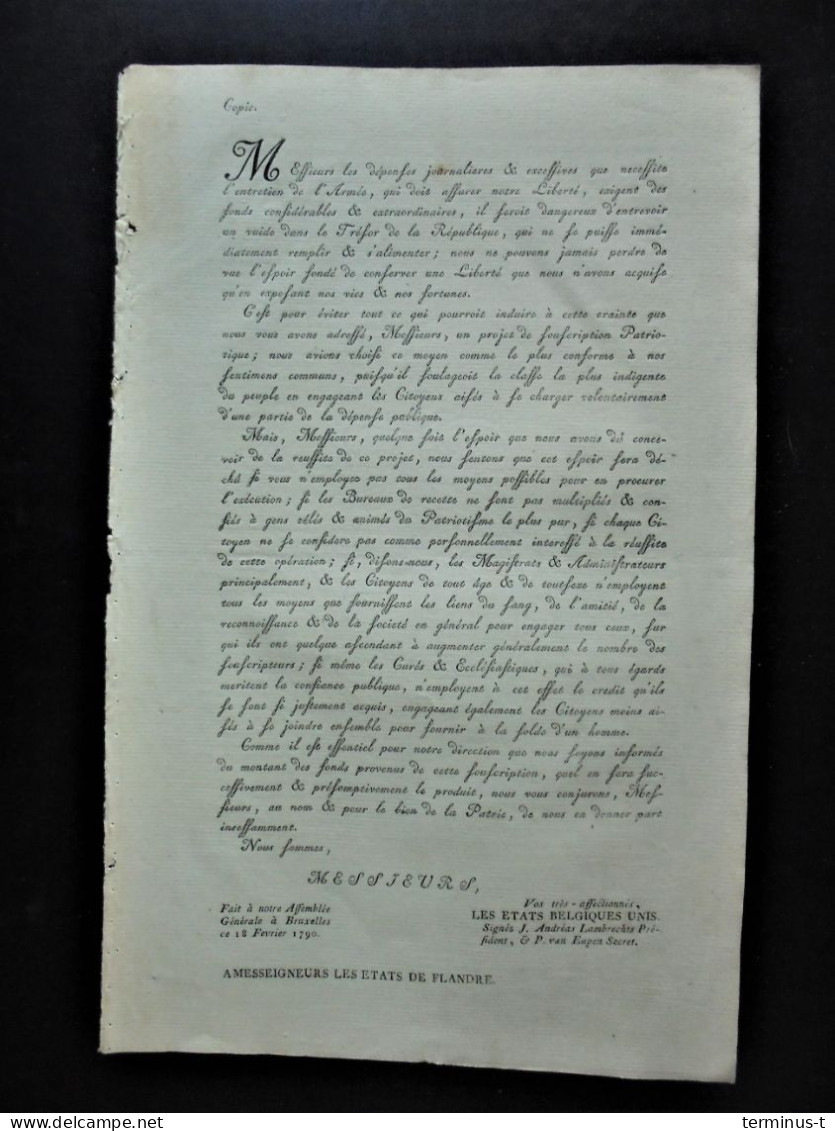 Copie.
MEssieurs les dépenses journalieres & excessives que necessite
l'entretien de l'Armée, qui doit assurer notre Liberté, exigent des
fonds considérables & extraordinaires, il seroit dangereux d'entrevoir
un vuide dans le Trésor de la République, qui ne se puisse immé-
diatement remplir & s'alimenter; nous ne pouvons jamais perdre de
vue l'espoir fondé de conserver une Liberté que nous n'avons acquise
qu'en exposant nos vies & nos fortunes.
C'est pour éviter tout ce qui pourroit induire à cette crainte que
nous vous avons adressé, Messieurs, un projet de souscription Patrio-
tique; nous avions choisi ce moyen comme le plus conforme à nos
sentimens communs, puisqu'il soulageoit la classe la plus indigente
du peuple en engageant les Citoyens aisés à se charger volontairement
d'une partie de la dépense publique.
Mais, Messieurs, quelque soit l'espoir que nous avons dû conce-
voir de la reussite de ce projet, nous sentons que cet espoir sera dé-
çu si vous n'employez pas tous les moyens possibles pour en procurer
l'exécution; si les Bureaux de recette ne sont pas multipliés & con-
fiés à gens zélés & animés du Patriotisme le plus pur, si chaque Ci-
toyen ne se considere pas comme personnellement interessé à la réussite
de cette opération; si, disons-nous, les Magistrats & Administrateurs
principalement, & les Citoyens de tout âge & de tout sexe n'employent
tous les moyens que fournissent les liens du sang, de l'amitié, de la
reconnoissance & de la Societé en général pour engager tous ceux, sur
qui ils ont quelque ascendant à augmenter généralement le nombre des
souscripteurs; si même les Curés & Ecclésiastiques, qui à tous égards
meritent la confiance publique, n'employent à cet effet le credit qu'ils
se sont si justement acquis, engageant également les Citoyens moins ai-
sés à se joindre ensemble pour fournir à la solde d'un homme.
Comme il est essentiel pour notre direction que nous soyons informés
du montant des fonds provenus de cette souscription, quel en sera suc-
cessivement & présomptivement le produit, nous vous conjurons, Mes-
sieurs, au nom & pour le bien de la Patrie, de nous en donner part
incessamment.
Nous sommes,
MESSIEURS,
Fait à notre Assemblée
Générale à Bruxelles
ce 18 Fevrier 1790.
Vos très-affectionnés,
LES ETATS BELGIQUES UNIS.
Signés J. Andréas Lambrechts Pré-
sident, & P. van Eupen Secret.
A MESSEIGNEURS LES ETATS DE FLANDRE.
terminus-t